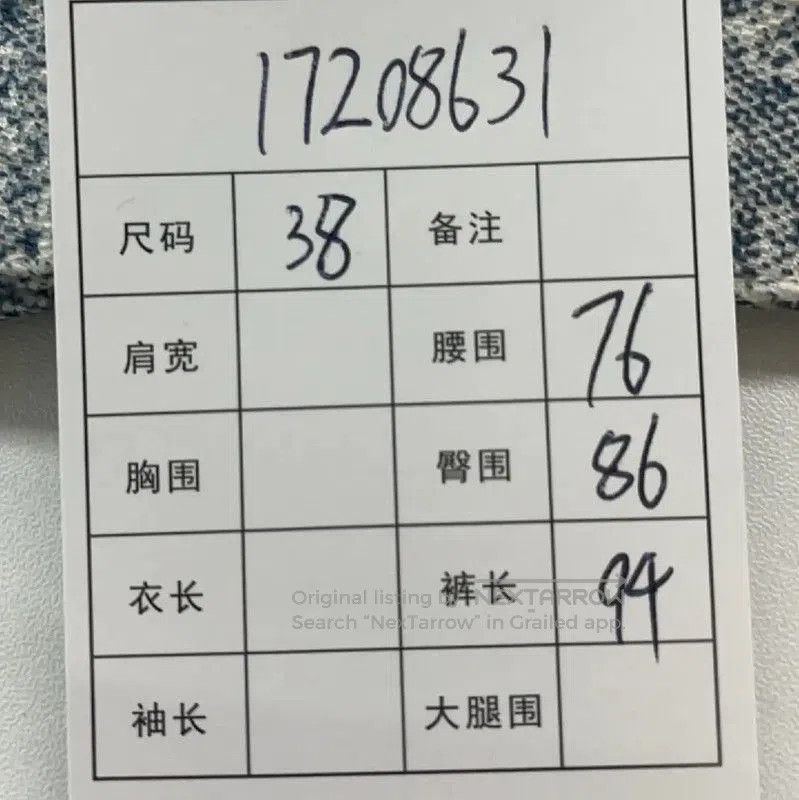 17208631
尺码 38 备注
肩宽 腰围 76
胸围 臀围 86
衣长 裤长 94
Original listing by NEXTARROW
Search "NexTarrow" in Grailed app.
袖长 大腿围